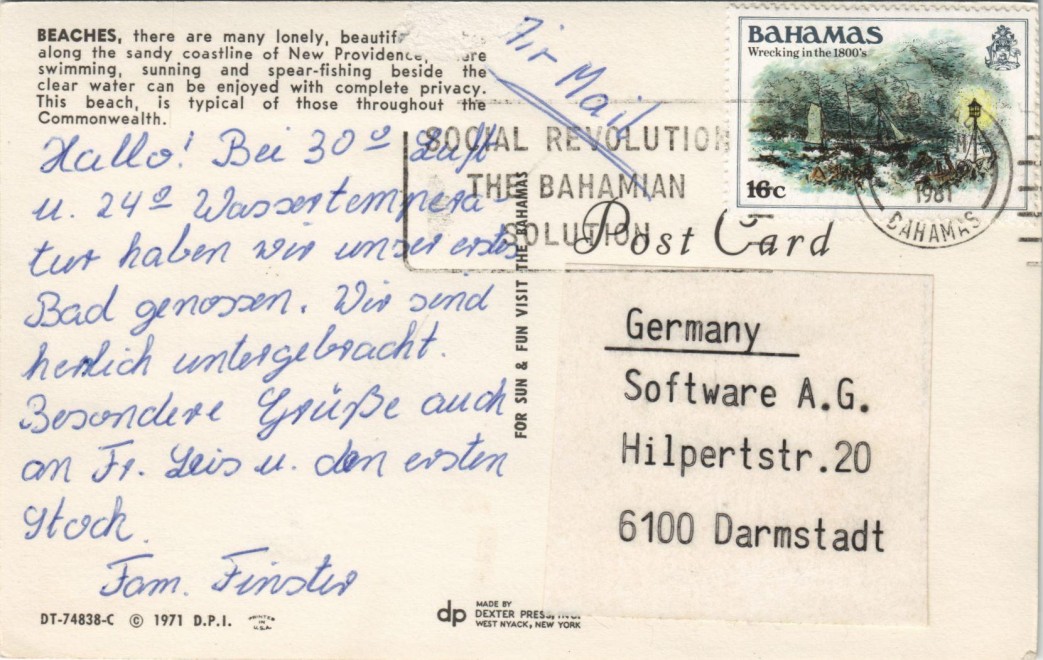 BEACHES, there are many lonely, beautif
along the sandy coastline of New Providence,
swimming, sunning and spear-fishing beside the
clear water can be enjoyed with complete privacy.
This beach, is typical of those throughout the
Commonwealth.
Air Mail
Hallo! Bei 30º Luft
u. 24º Wassertempera-
tur haben wir unser erstes
Bad genossen. Wir sind
herrlich untergebracht.
Besondere Grüße auch
an Fr. Leis u. den ersten
Stock.
Fam. Finster
DT-74838-C © 1971 D.P.I.
PRINTED
IN
U.S.A.
FOR SUN & FUN VISIT THE BAHAMAS
dp
MADE BY
DEXTER PRESS, INC.
WEST NYACK, NEW YORK
SOCIAL REVOLUTION
THE BAHAMIAN
SOLUTION
Post Card
BAHAMAS
Wrecking in the 1800's
16c
1981
BAHAMAS
Germany
Software A.G.
Hilpertstr.20
6100 Darmstadt